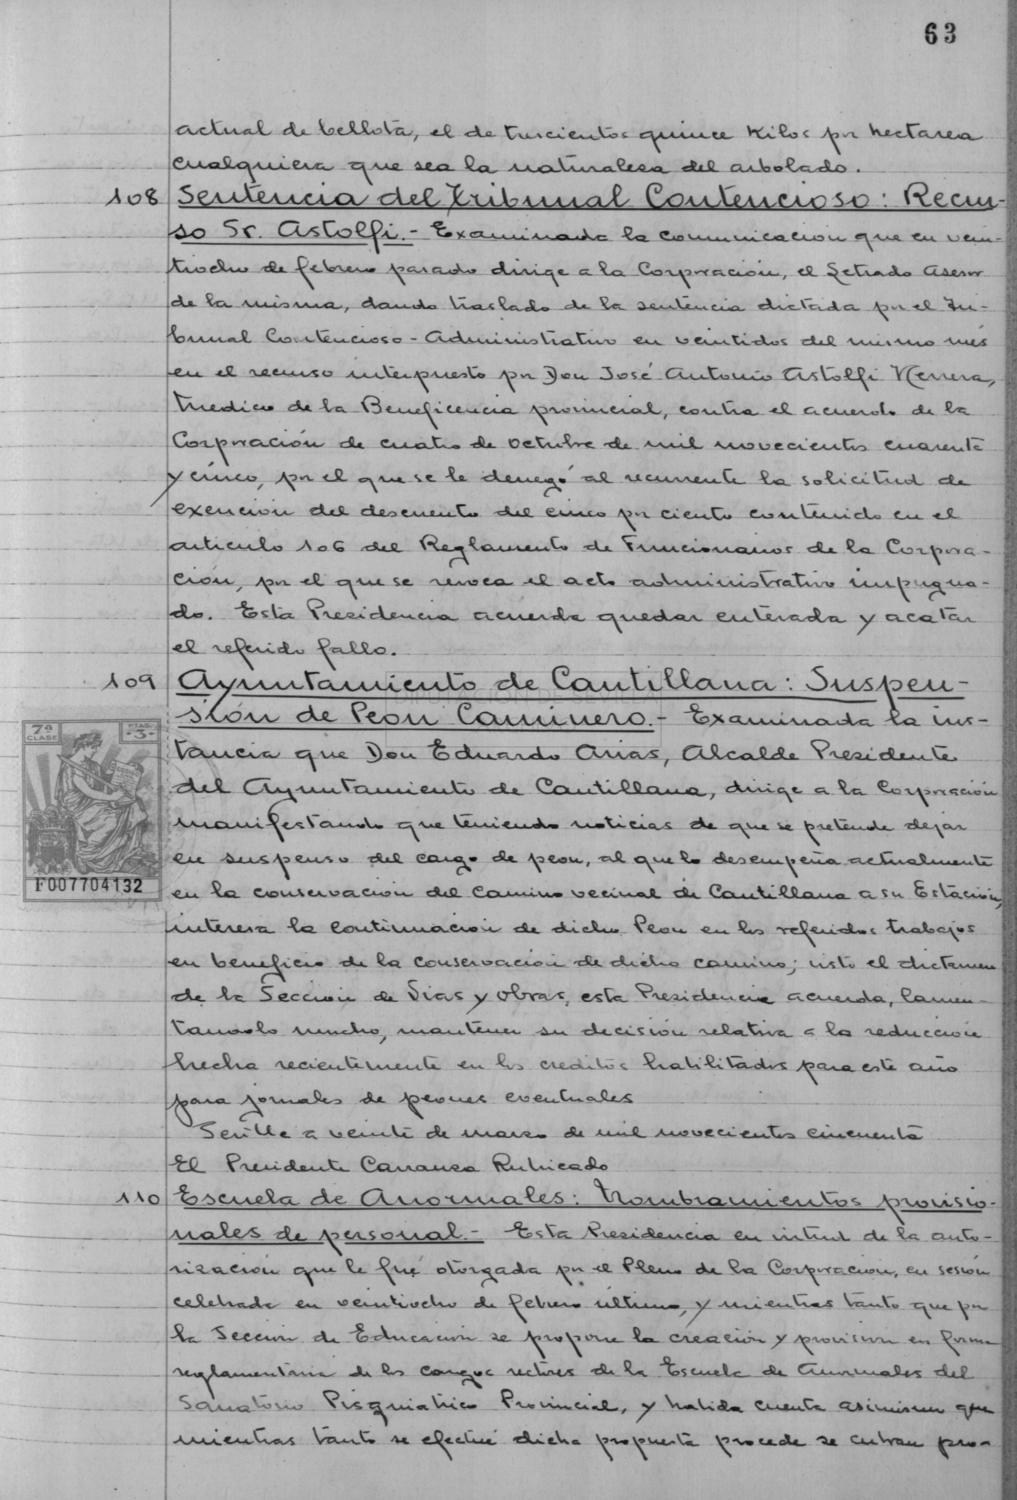 63
actual de bellota, el de trescientos quince Kilos por hectarea
cualquiera que sea la naturaleza del arbolado.
108 Sentencia del Tribunal Contencioso: Recur-
so Sr. Astolfi.- Examinada la comunicacion que en vein-
tiocho de febrero pasado dirige a la Corporación, el Letrado Asesor
de la misma, dando traslado de la sentencia dictada por el Tri-
bunal Contencioso-Administrativo en veintidos del mismo mes
en el recurso interpuesto por Don José Antonio Astolfi Herrera,
Medico de la Beneficencia provincial, contra el acuerdo de la
Corporación de cuatro de octubre de mil novecientos cuarenta
y cinco, por el que se le denegó al recurrente la solicitud de
exención del descuento del cinco por ciento contenido en el
articulo 106 del Reglamento de Funcionarios de la Corpora-
ción, por el que se revoca el acto administrativo impugna-
do. Esta Presidencia acuerda quedar enterada y acatar
el referido fallo.
109 Ayuntamiento de Cantillana: Suspen-
DIPUTACIÓN DE SEVILLA
sión de Peon Caminero.- Examinada la ins-
7ª CLASE PTAS. -3-
tancia que Don Eduardo Arias, Alcalde Presidente
del Ayuntamiento de Cantillana, dirige a la Corporación
manifestando que teniendo noticias de que se pretende dejar
en suspenso del cargo de peon, al que lo desempeña actualmente
F007704132
en la conservación del camino vecinal de Cantillana a su Estación,
interesa la continuacion de dicho Peon en los referidos trabajos
en beneficio de la conservación de dicho camino; visto el dictamen
de la Sección de Vias y Obras, esta Presidencia acuerda, lamen-
tandolo mucho, mantener su decisión relativa a la reducción
hecha recientemente en los creditos habilitados para este año
para jornales de peones eventuales
Sevilla a veinte de marzo de mil novecientos cincuenta
El Presidente Carranza Rubicado
110 Escuela de Anormales: Nombramientos provisio-
nales de personal.- Esta Presidencia en virtud de la auto-
rización que le fué otorgada por el Pleno de la Corporación, en sesión
celebrada en veintiocho de febrero último, y mientras tanto que por
la Sección de Educación se propone la creación y provision en forma
reglamentaria de los cargos rectores de la Escuela de Anormales del
Sanatorio Psiquiatrico Provincial, y habida cuenta asimismo que
mientras tanto se efectué dicha propuesta procede se cubran pro-